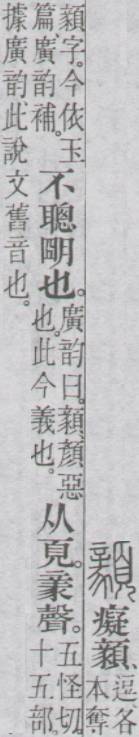 顡癡顡、逗各本奪
顡字。今依玉篇廣韵補。不聰朙也。廣韵曰。顡顏惡也。此今義也。从頁。豙聲。五怪切。十五部。
據廣韵此說文舊音也。